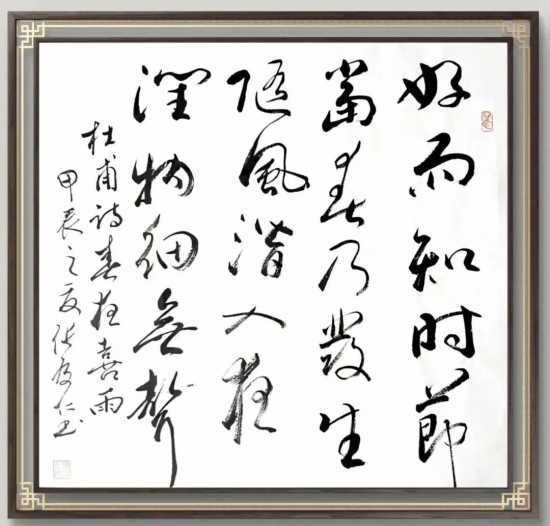 好雨知时節
當春乃發生
随風潜入夜
潤物細無聲
杜甫詩春夜喜雨
甲辰之夏张仁书